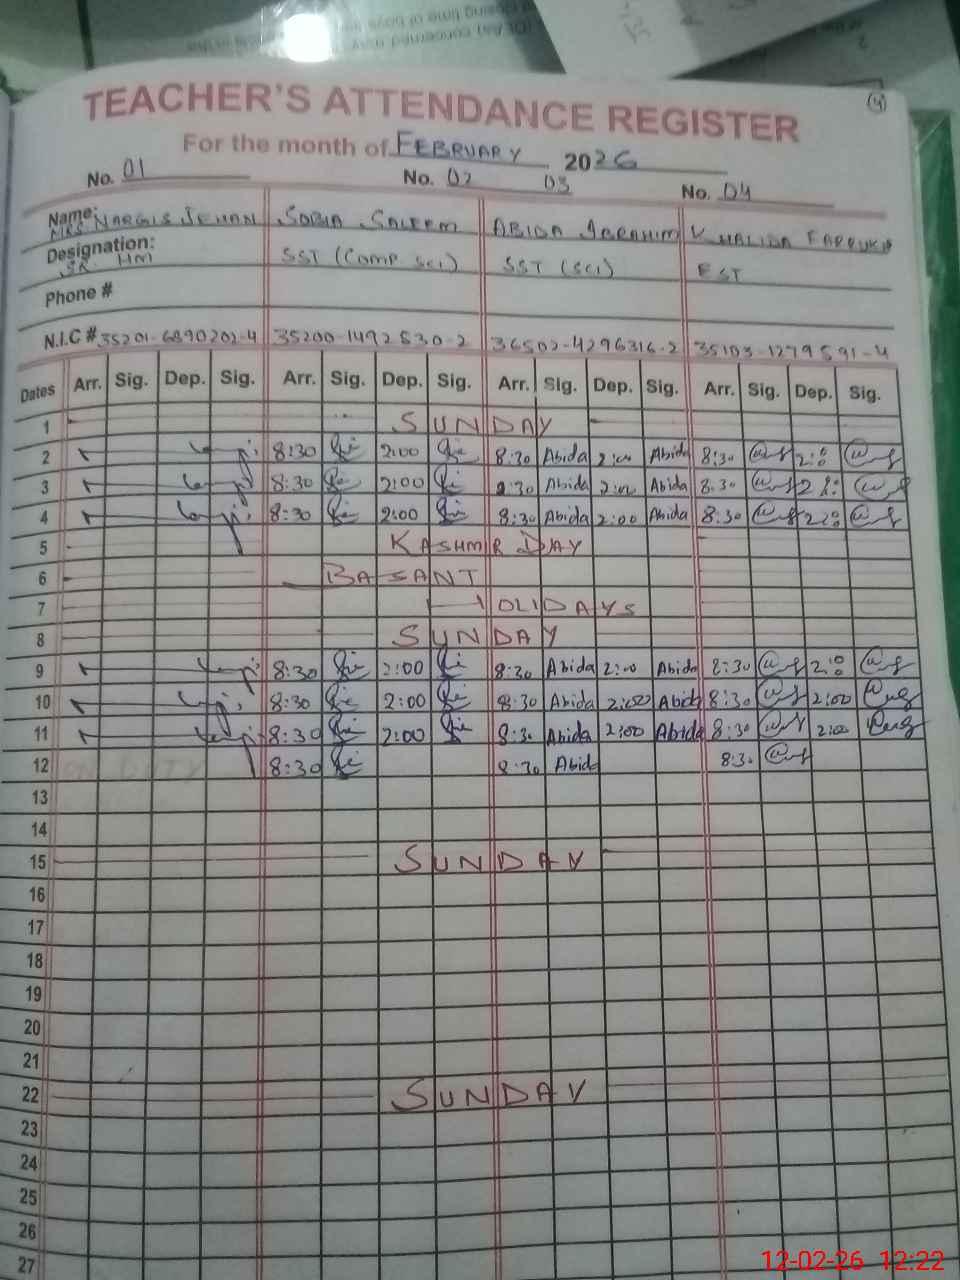 TEACHER'S ATTENDANCE REGISTER
4
For the month of FEBRUARY 2026
No. 01 No. 02 03 No. 04
Name: MRS NARGIS JEHAN SOBIA SALEEM ABIDA IBRAHIM KHALIDA FARRUKH
Designation: SR. HM SST (COMP SCI) SST (SCI) EST
Phone #
N.I.C # 35201-6890202-4 35200-1492530-2 36502-4296316-2 35103-1279591-4
Dates Arr. Sig. Dep. Sig. Arr. Sig. Dep. Sig. Arr. Sig. Dep. Sig. Arr. Sig. Dep. Sig.
1 SUNDAY
2 8:30 2:00 8:30 Abida 2:00 Abida 8:30 2:00
3 8:30 2:00 8:30 Abida 2:00 Abida 8:30 2:00
4 8:30 2:00 8:30 Abida 2:00 Abida 8:30 2:00
5 KASHMIR DAY
6 BASANT
7 HOLIDAYS
8 SUNDAY
9 8:30 2:00 8:30 Abida 2:00 Abida 8:30 2:00
10 8:30 2:00 8:30 Abida 2:00 Abida 8:30 2:00
11 8:30 2:00 8:30 Abida 2:00 Abida 8:30 2:00
12 ON DUTY 8:30 8:30 Abida 8:30
13
14
15 SUNDAY
16
17
18
19
20
21
22 SUNDAY
23
24
25
26
27
12-02-26 12:22